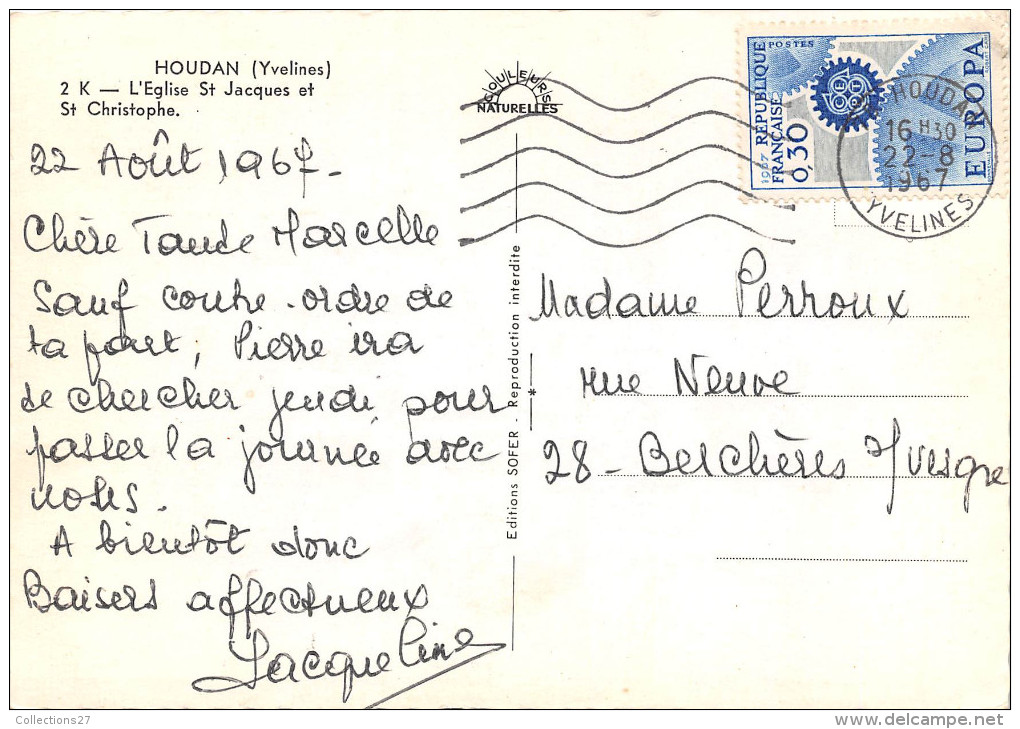 HOUDAN (Yvelines)
2 K — L'Eglise St Jacques et
St Christophe.
COULEURS
NATURELLES
1967 REPUBLIQUE
FRANÇAISE
POSTES
0,30
CEPT
EUROPA
HOUDAN
16 H30
22-8
1967
YVELINES
22 Août 1967-
Chère Tante Marcelle
Sauf contre-ordre de
ta part, Pierre ira
te chercher jeudi pour
passer la journée avec
nous.
A bientôt donc
Baisers affectueux
Jacqueline
Editions SOFER - Reproduction interdite
*
Madame Perroux
rue Neuve
28 - Berchères s/Vesgre
Collections27
delcampe.net